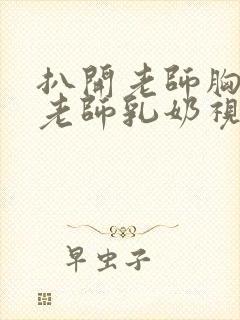 扒開老師胸
老師乳奶視
早虫子